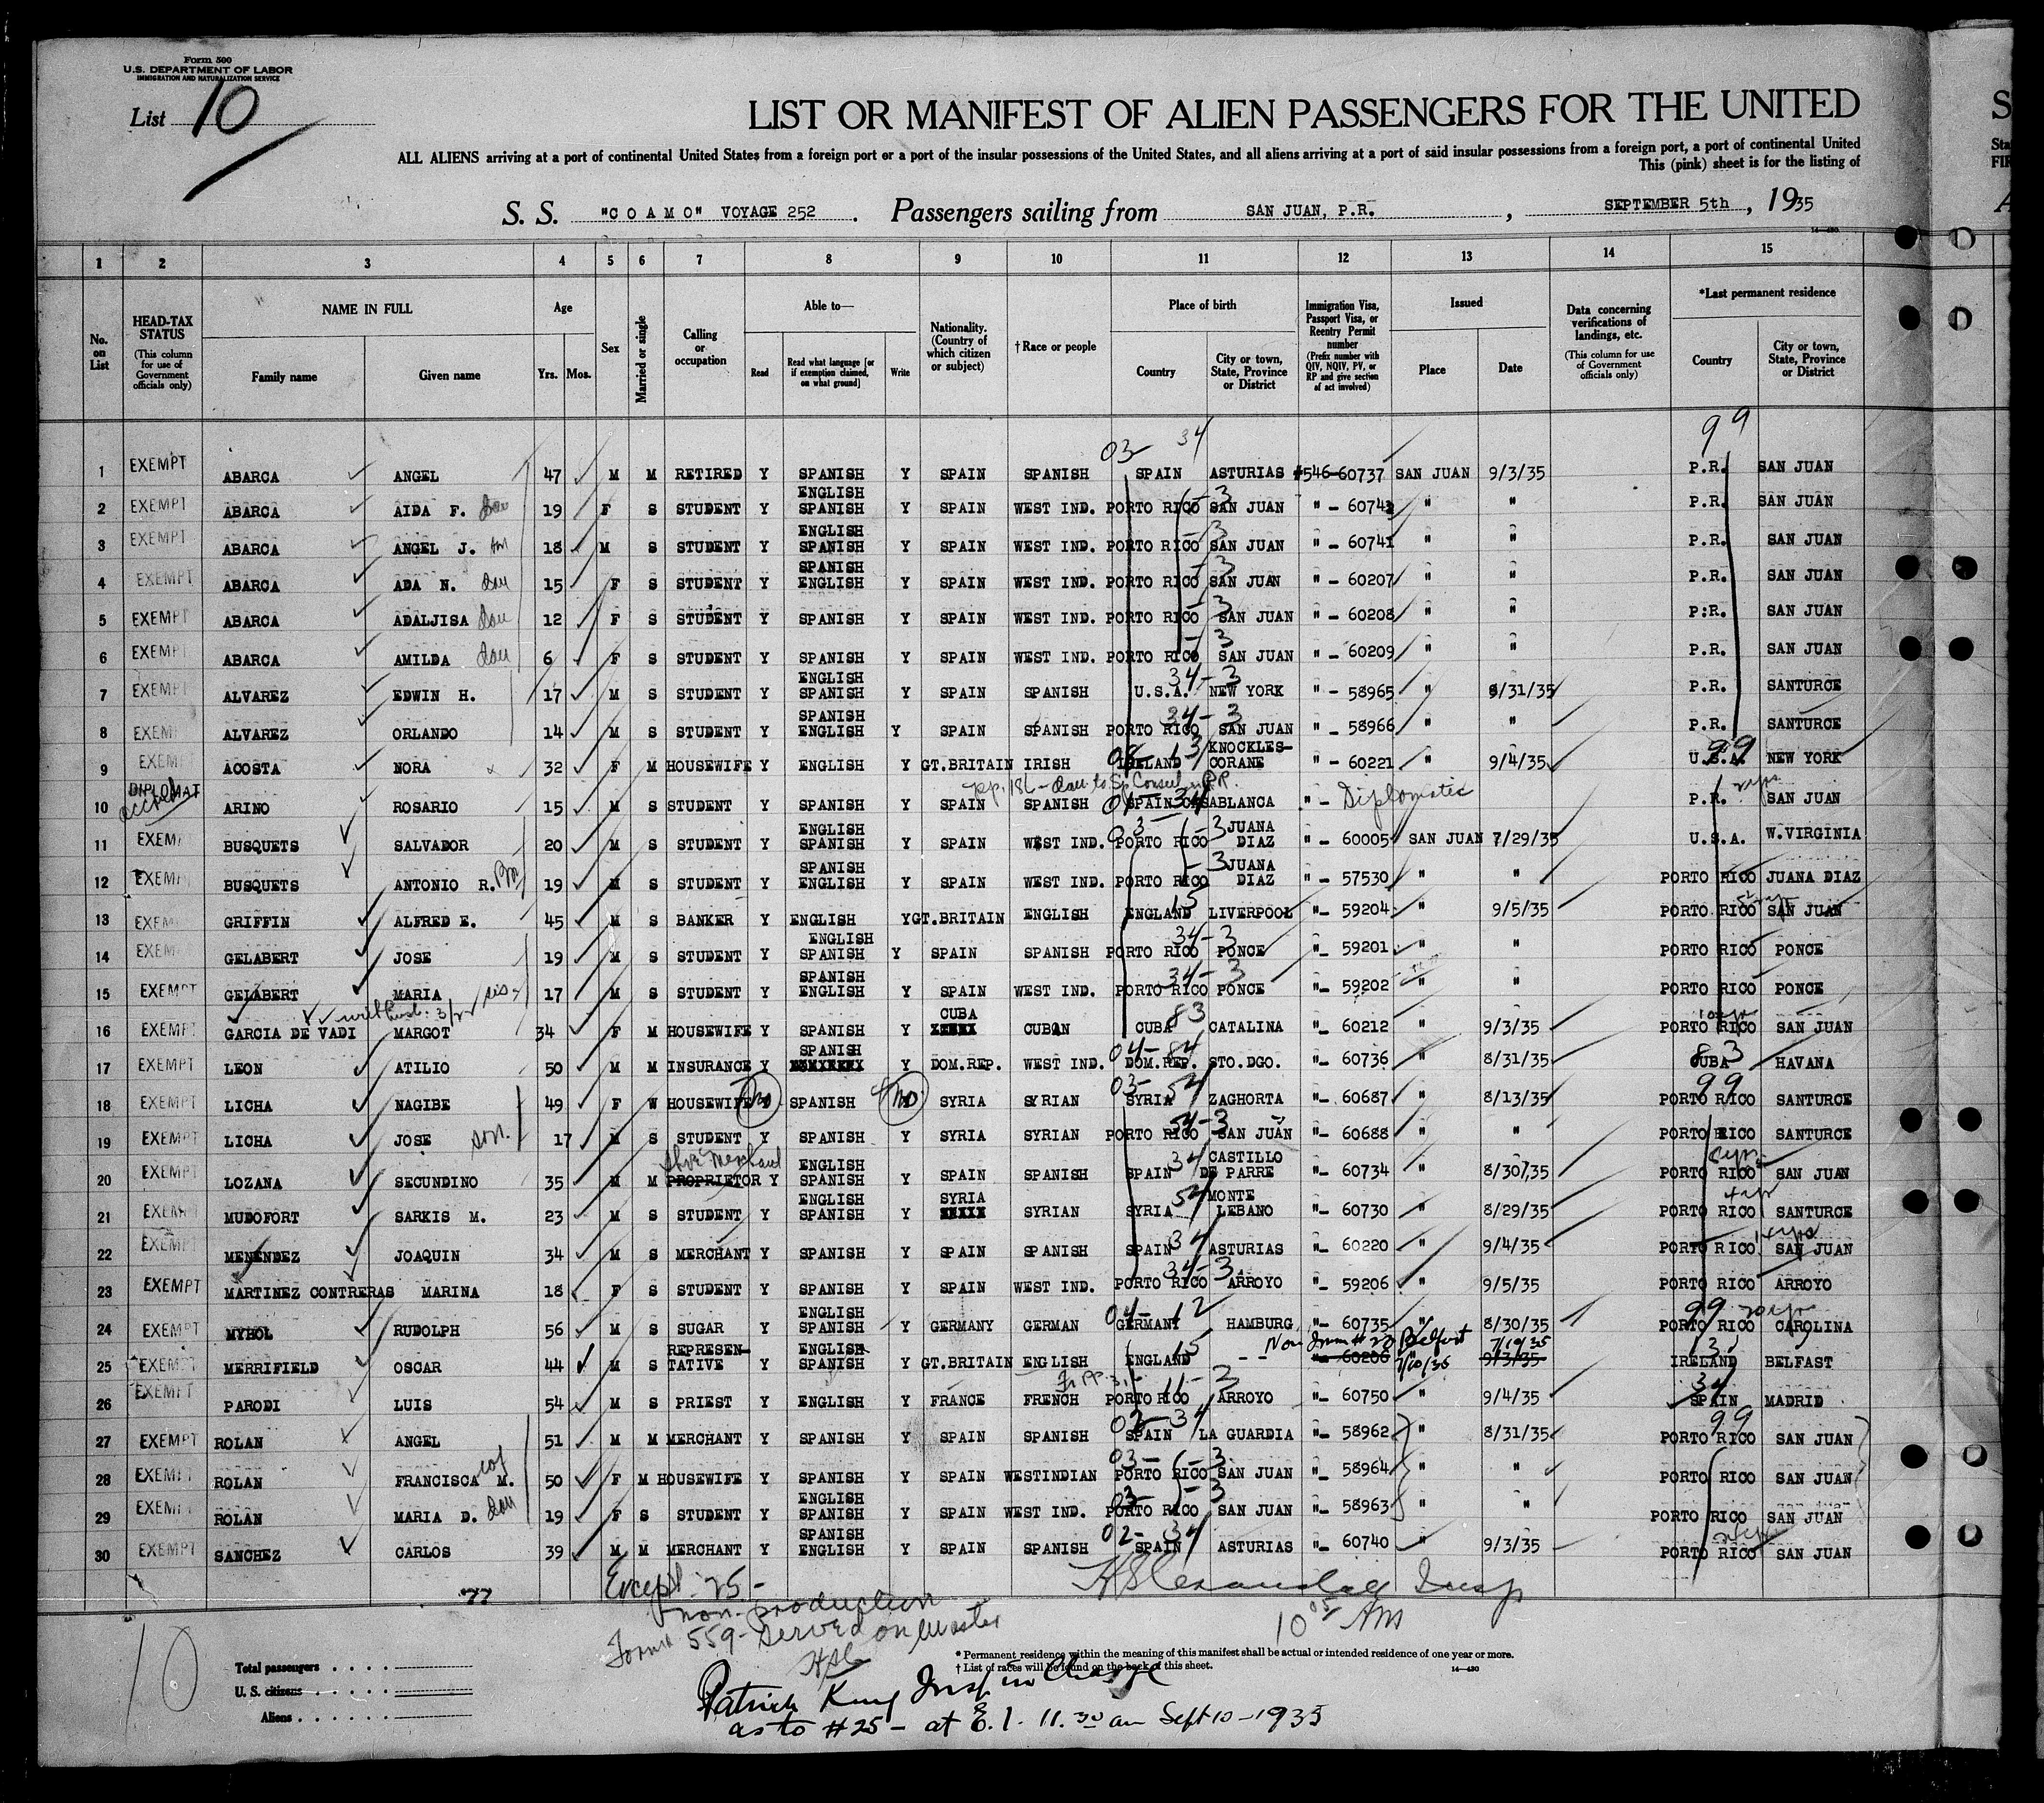 Form 500
U.S. DEPARTMENT OF LABOR
IMMIGRATION AND NATURALIZATION SERVICE
List 10
LIST OR MANIFEST OF ALIEN PASSENGERS FOR THE UNITED
ALL ALIENS arriving at a port of continental United States from a foreign port or a port of the insular possessions of the United States, and all aliens arriving at a port of said insular possessions from a foreign port, a port of continental United
This (pink) sheet is for the listing of
S. S. "COAMO" VOYAGE 252 . Passengers sailing from SAN JUAN, P.R. , SEPTEMBER 5th , 1935
1 2 3 4 5 6 7 8 9 10 11 12 13 14 15
No. on List
HEAD-TAX STATUS (This column for use of Government officials only)
NAME IN FULL Family name Given name
Age Yrs. Mos.
Sex
Married or single
Calling or occupation
Able to— Read Read what language [or if exemption claimed, on what ground] Write
Nationality. (Country of which citizen or subject)
†Race or people
Place of birth Country City or town, State, Province or District
Immigration Visa, Passport Visa, or Reentry Permit number (Prefix number with QIV, NQIV, PV, or RP and give section of act involved)
Issued Place Date
Data concerning verifications of landings, etc. (This column for use of Government officials only)
*Last permanent residence Country City or town, State, Province or District
03 34 99
1 EXEMPT ABARCA ANGEL 47 M M RETIRED Y SPANISH Y SPAIN SPANISH SPAIN ASTURIAS #546-60737 SAN JUAN 9/3/35 P.R. SAN JUAN
2 EXEMPT ABARCA AIDA F. dau 19 F S STUDENT Y ENGLISH SPANISH Y SPAIN WEST IND. PORTO RICO SAN JUAN " - 60742 " " P.R. SAN JUAN
3 EXEMPT ABARCA ANGEL J. 18 M S STUDENT Y ENGLISH SPANISH Y SPAIN WEST IND. PORTO RICO SAN JUAN " - 60741 " " P.R. SAN JUAN
4 EXEMPT ABARCA ADA N. dau 15 F S STUDENT Y SPANISH ENGLISH Y SPAIN WEST IND. PORTO RICO SAN JUAN " - 60207 " " P.R. SAN JUAN
5 EXEMPT ABARCA ADALJISA dau 12 F S STUDENT Y SPANISH Y SPAIN WEST IND. PORTO RICO SAN JUAN " - 60208 " " P.R. SAN JUAN
6 EXEMPT ABARCA AMILDA dau 6 F S STUDENT Y SPANISH Y SPAIN WEST IND. PORTO RICO SAN JUAN " - 60209 " " P.R. SAN JUAN
7 EXEMPT ALVAREZ EDWIN H. 17 M S STUDENT Y ENGLISH SPANISH Y SPAIN SPANISH U.S.A. NEW YORK " - 58965 " 8/31/35 P.R. SANTURCE
8 EXEMPT ALVAREZ ORLANDO 14 M S STUDENT Y SPANISH ENGLISH Y SPAIN SPANISH PORTO RICO SAN JUAN " - 58966 " " P.R. SANTURCE
9 EXEMPT ACOSTA NORA 32 F M HOUSEWIFE Y ENGLISH Y GT.BRITAIN IRISH IRELAND KNOCKLES-CORANE " - 60221 " 9/4/35 U.S.A. NEW YORK
10 DIPLOMAT ARINO ROSARIO 15 M S STUDENT Y SPANISH Y SPAIN SPANISH SPAIN CASABLANCA " - Diplomatic P.R. SAN JUAN
11 EXEMPT BUSQUETS SALVADOR 20 M S STUDENT Y ENGLISH SPANISH Y SPAIN WEST IND. PORTO RICO JUANA DIAZ " - 60005 SAN JUAN 7/29/35 U.S.A. W.VIRGINIA
12 EXEMPT BUSQUETS ANTONIO R. 19 M S STUDENT Y SPANISH ENGLISH Y SPAIN WEST IND. PORTO RICO JUANA DIAZ " - 57530 " " PORTO RICO JUANA DIAZ
13 EXEMPT GRIFFIN ALFRED E. 45 M S BANKER Y ENGLISH Y GT.BRITAIN ENGLISH ENGLAND LIVERPOOL " - 59204 " 9/5/35 PORTO RICO SAN JUAN
14 EXEMPT GELABERT JOSE 19 M S STUDENT Y ENGLISH SPANISH Y SPAIN SPANISH PORTO RICO PONCE " - 59201 " " PORTO RICO PONCE
15 EXEMPT GELABERT MARIA sis 17 M S STUDENT Y SPANISH ENGLISH Y SPAIN WEST IND. PORTO RICO PONCE " - 59202 " " PORTO RICO PONCE
16 EXEMPT GARCIA DE VADI MARGOT 34 F M HOUSEWIFE Y SPANISH Y CUBA CUBAN CUBA CATALINA " - 60212 " 9/3/35 PORTO RICO SAN JUAN
17 EXEMPT LEON ATILIO 50 M M INSURANCE Y SPANISH Y DOM.REP. WEST IND. DOM.REP. STO.DGO. " - 60736 " 8/31/35 CUBA HAVANA
18 EXEMPT LICHA NAGIBE 49 F W HOUSEWIFE no SPANISH no SYRIA SYRIAN SYRIA ZAGHORTA " - 60687 " 8/13/35 PORTO RICO SANTURCE
19 EXEMPT LICHA JOSE son. 17 M S STUDENT Y SPANISH Y SYRIA SYRIAN PORTO RICO SAN JUAN " - 60688 " " PORTO RICO SANTURCE
20 EXEMPT LOZANA SECUNDINO 35 M M PROPRIETOR Merchant Y ENGLISH SPANISH Y SPAIN SPANISH SPAIN CASTILLO DE PARRE " - 60734 " 8/30/35 PORTO RICO SAN JUAN
21 EXEMPT MUDOFORT SARKIS M. 23 M S STUDENT Y ENGLISH SPANISH Y SYRIA SYRIAN SYRIA MONTE LEBANO " - 60730 " 8/29/35 PORTO RICO SANTURCE
22 EXEMPT MENENDEZ JOAQUIN 34 M S MERCHANT Y SPANISH Y SPAIN SPANISH SPAIN ASTURIAS " - 60220 " 9/4/35 PORTO RICO SAN JUAN
23 EXEMPT MARTINEZ CONTRERAS MARINA 18 F S STUDENT Y SPANISH Y SPAIN WEST IND. PORTO RICO ARROYO " - 59206 " 9/5/35 PORTO RICO ARROYO
24 EXEMPT MYHOL RUDOLPH 56 M S SUGAR Y ENGLISH SPANISH Y GERMANY GERMAN GERMANY HAMBURG " - 60735 " 8/30/35 PORTO RICO CAROLINA
25 EXEMPT MERRIFIELD OSCAR 44 M S REPRESENTATIVE Y ENGLISH SPANISH Y GT.BRITAIN ENGLISH ENGLAND -- " - 60206 Belfast 7/10/35 9/3/35 IRELAND BELFAST
26 EXEMPT PARODI LUIS 54 M S PRIEST Y ENGLISH Y FRANCE FRENCH PORTO RICO ARROYO " - 60750 " 9/4/35 SPAIN MADRID
27 EXEMPT ROLAN ANGEL 51 M M MERCHANT Y SPANISH Y SPAIN SPANISH SPAIN LA GUARDIA " - 58962 " 8/31/35 PORTO RICO SAN JUAN
28 EXEMPT ROLAN FRANCISCA M. 50 F M HOUSEWIFE Y SPANISH Y SPAIN WESTINDIAN PORTO RICO SAN JUAN " - 58964 " " PORTO RICO SAN JUAN
29 EXEMPT ROLAN MARIA D. dau 19 F S STUDENT Y ENGLISH SPANISH Y SPAIN WEST IND. PORTO RICO SAN JUAN " - 58963 " " PORTO RICO SAN JUAN
30 EXEMPT SANCHEZ CARLOS 39 M M MERCHANT Y SPANISH ENGLISH Y SPAIN SPANISH SPAIN ASTURIAS " - 60740 " 9/3/35 PORTO RICO SAN JUAN
Except 25 -
non-production
Form 559 - served on Master
10 05 AM
10
Total passengers
U. S. citizens
Aliens
* Permanent residence within the meaning of this manifest shall be actual or intended residence of one year or more.
† List of races will be found on the back of this sheet.
14—430
Patrick King Insp in Charge
as to #25 - at E.I. 11.30 am Sept 10 - 1935